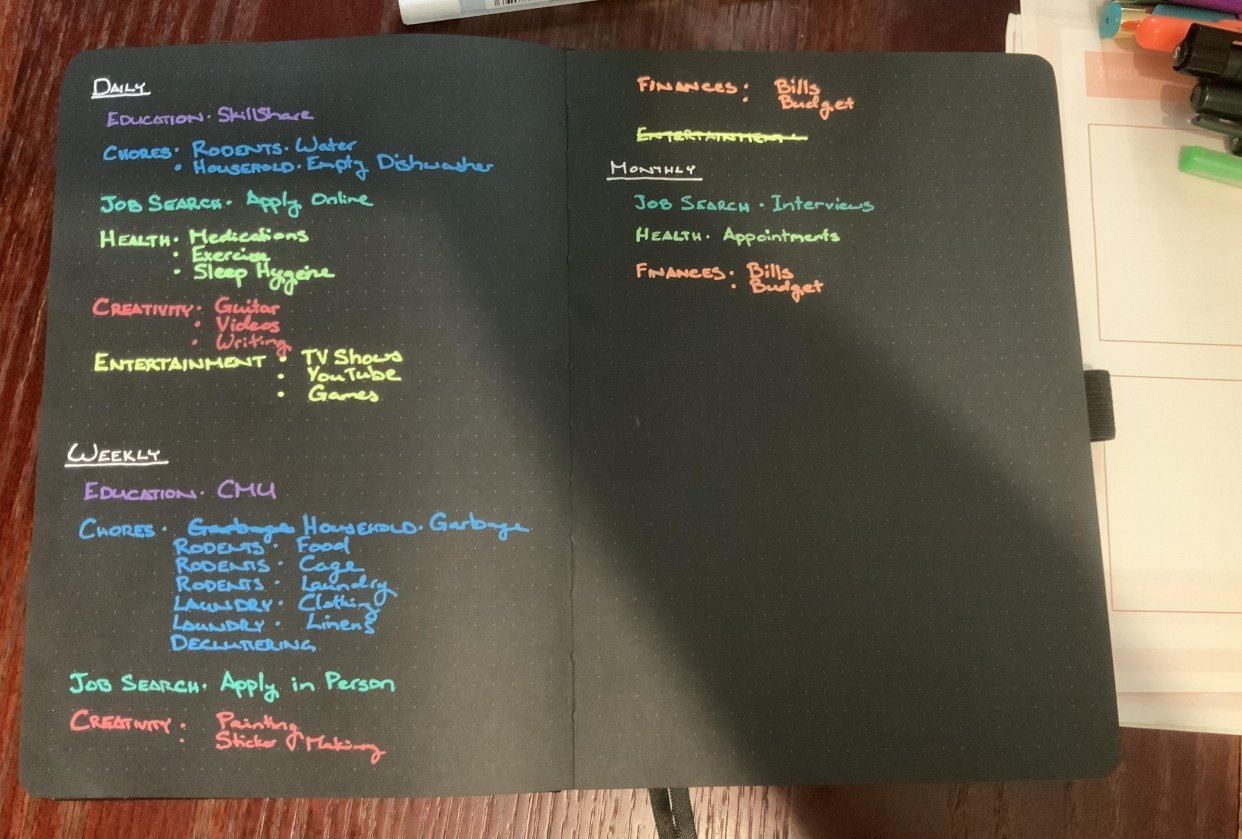 DAILY
EDUCATION · SkillShare
CHORES · RODENTS · Water
· HOUSEHOLD · Empty Dishwasher
JOB SEARCH · Apply Online
HEALTH · Medications
· Exercise
· Sleep Hygeine
CREATIVITY · Guitar
· Videos
· Writing
ENTERTAINMENT · TV Shows
· YouTube
· Games
WEEKLY
EDUCATION · CMU
CHORES · Garbage HOUSEHOLD · Garbage
RODENTS · Food
RODENTS · Cage
RODENTS · Laundry
LAUNDRY · Clothing
LAUNDRY · Linens
DECLUTTERING
JOB SEARCH · Apply in Person
CREATIVITY · Painting
· Sticker Making
FINANCES · Bills
· Budget
ENTERTAINMENT ·
MONTHLY
JOB SEARCH · Interviews
HEALTH · Appointments
FINANCES · Bills
· Budget